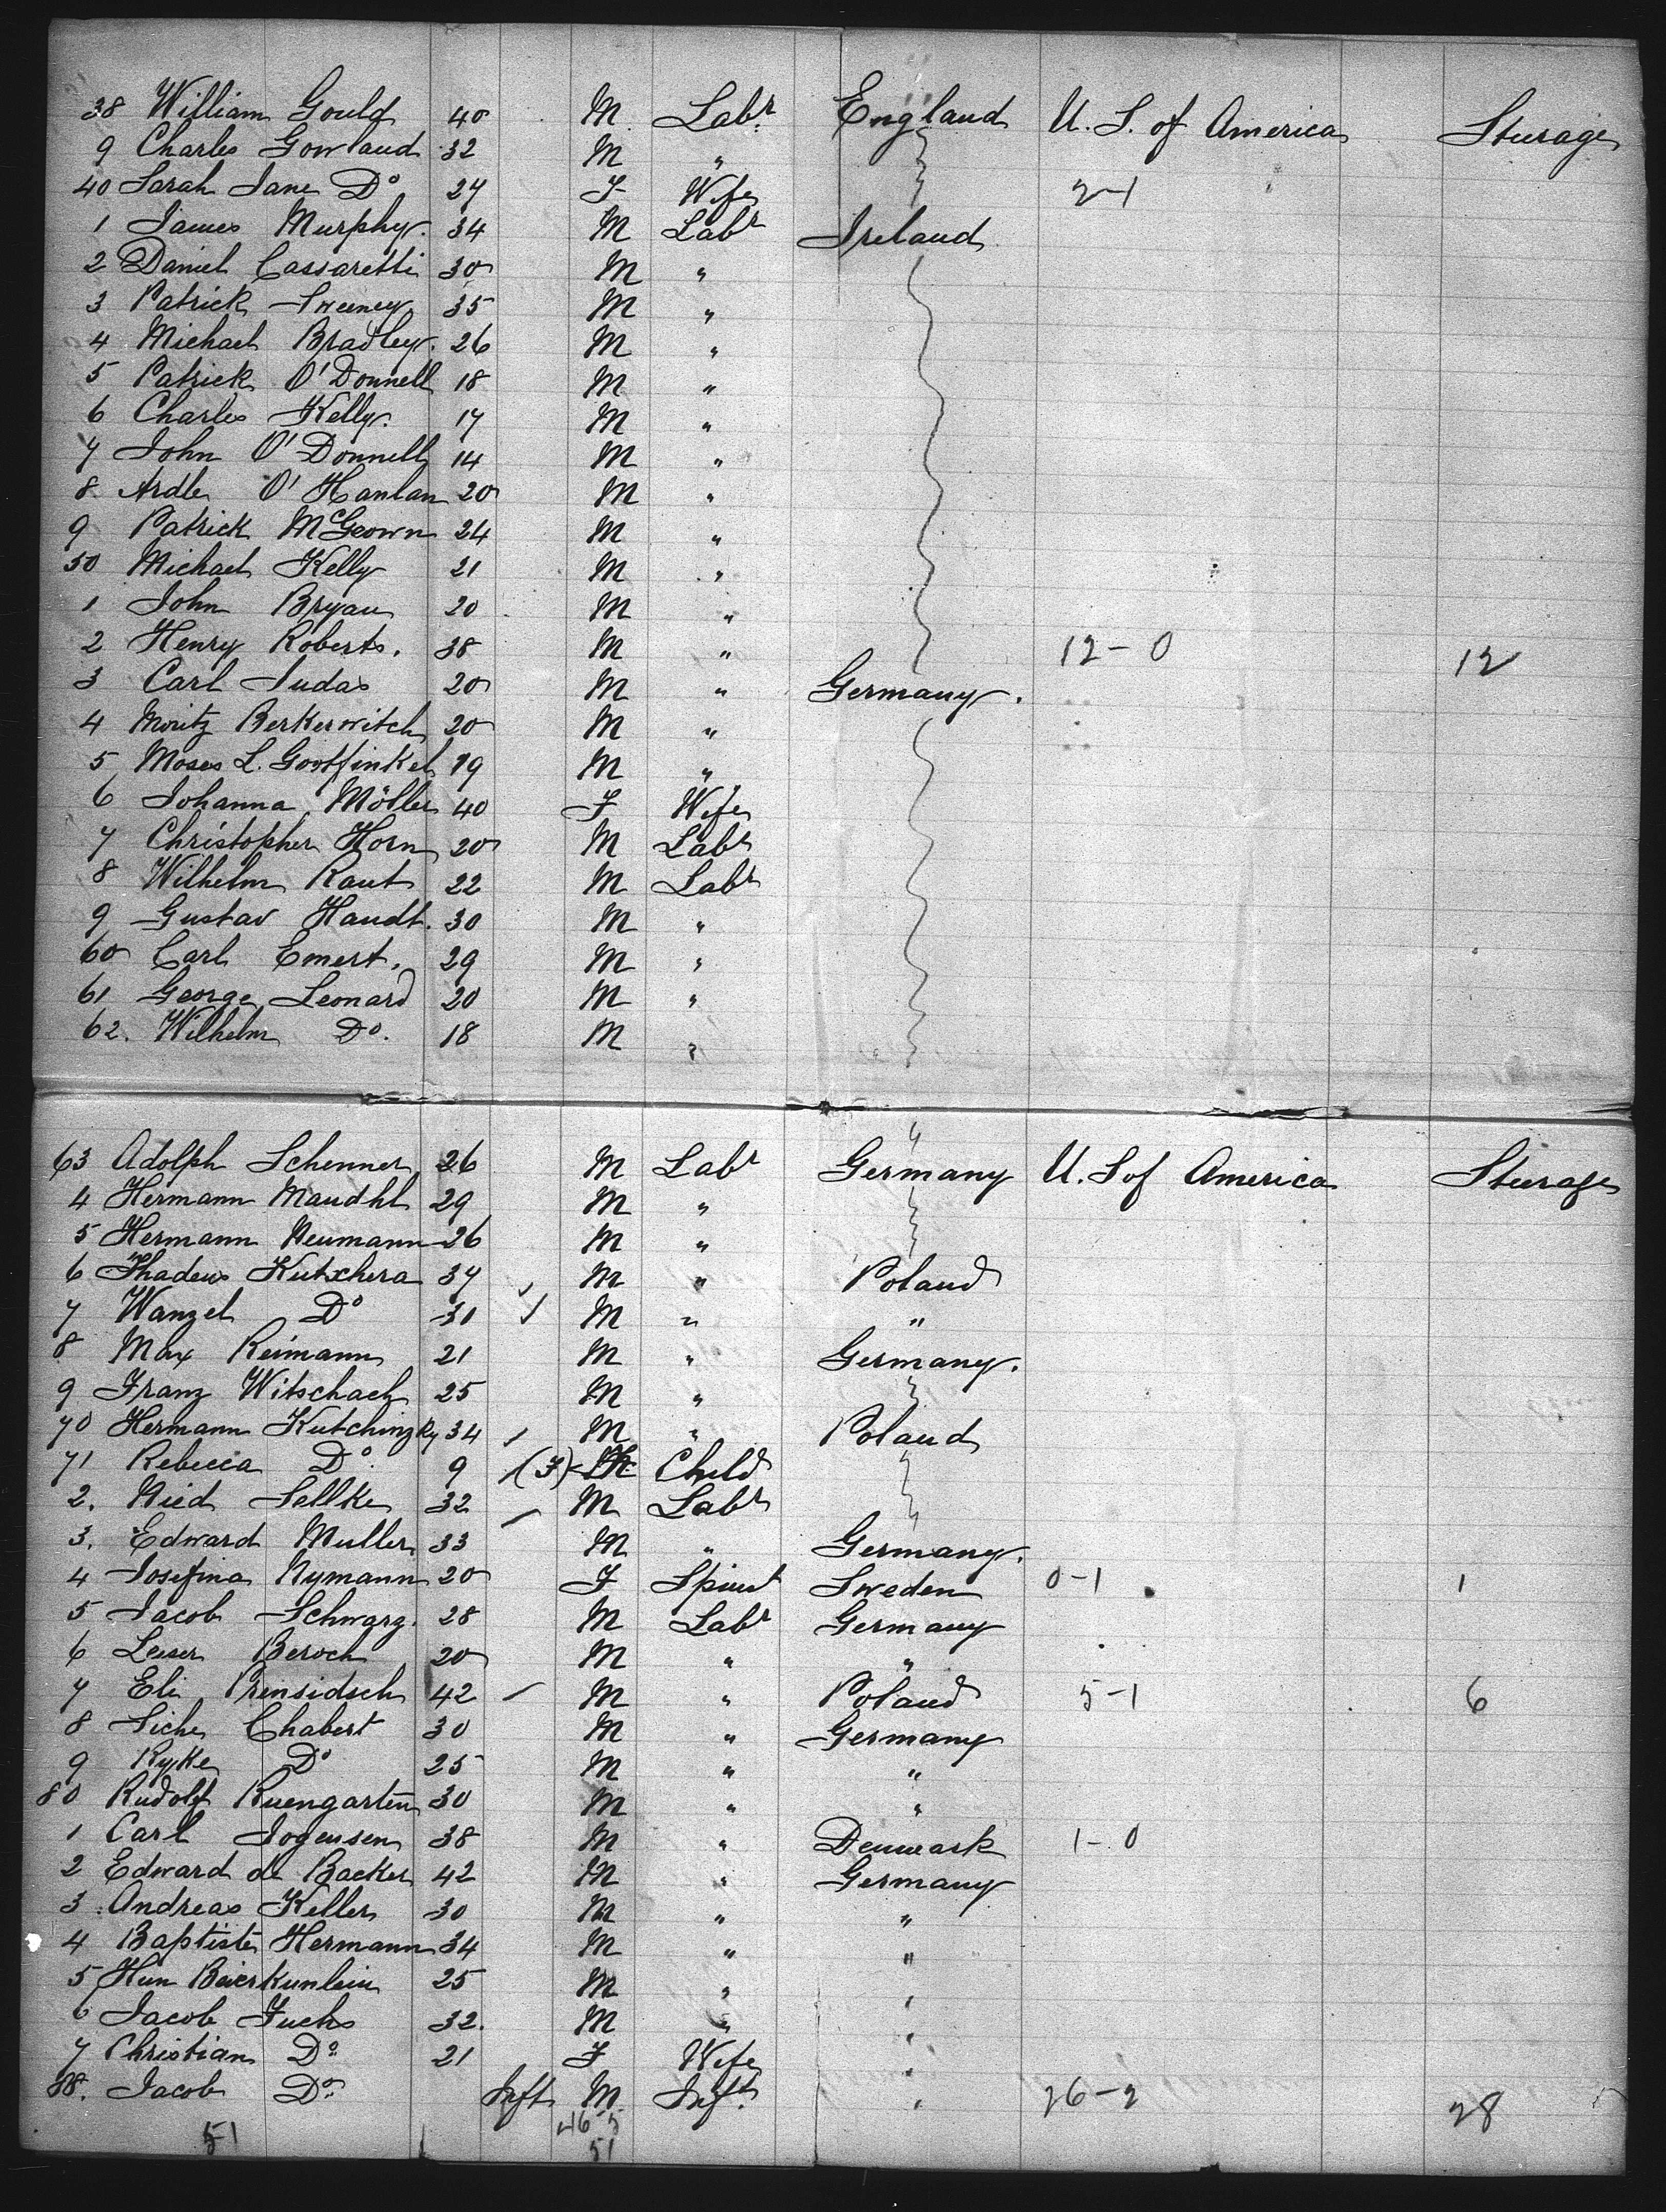 38 William Gould 40 M Labr England U. S. of America Steerage
9 Charles Gowland 32 M "
40 Sarah Jane Do 24 F Wife 2-1
1 James Murphy. 34 M Labr Ireland
2 Daniel Cassaretti 30 M "
3 Patrick Sweeney 35 M "
4 Michael Bradley. 26 M "
5 Patrick O'Donnell 18 M "
6 Charles Kelly. 17 M "
7 John O'Donnell 14 M "
8 Ardle O'Hanlan 20 M "
9 Patrick McGeown 24 M "
50 Michael Kelly 21 M "
1 John Bryan 20 M "
2 Henry Roberts. 38 M " 12-0 12
3 Carl Judas 20 M " Germany.
4 Moritz Berkerwitch 20 M "
5 Moses L. Gootfinkel 19 M "
6 Johanna Möller 40 F Wife
7 Christopher Horn 20 M Labr
8 Wilhelm Raut 22 M Labr
9 Gustav Haudt. 30 M "
60 Carl Emert. 29 M "
61 George Leonard 20 M "
62. Wilhelm Do. 18 M "
63 Adolph Schenner 26 M Labr Germany U. S of America Steerage
4 Hermann Maudhl 29 M "
5 Hermann Neumann 26 M "
6 Thadeus Kutschera 37 M " Poland
7 Wanzel Do 31 M " "
8 Max Reimann 21 M " Germany.
9 Franz Witschach 25 M "
70 Hermann Kutchingky 34 M " Poland
71 Rebecca Do. 9 (F) Child
2. Nied Sellke 32 M Labr
3. Edward Muller 33 M " Germany.
4 Josefina Nymann 20 F Spinst Sweden 0-1 1
5 Jacob Schwarz. 28 M Labr Germany
6 Leiser Beroch 20 M " "
7 Eli Prensidsch 42 M " Poland 5-1 6
8 Siche Chabert 30 M " Germany
9 Ryke Do 25 M " "
80 Rudolf Ruengarten 30 M " "
1 Carl Jogensen 38 M " Denmark 1-0
2 Edward de Backer 42 M " Germany
3 Andreas Keller 30 M " "
4 Baptiste Hermann 34 M " "
5 Hun Beierkunlein 25 M " "
6 Jacob Fuchs 32. M " "
7 Christian Do 21 F Wife "
88. Jacob Do Inft M Inft. " 26-2 28
46-5
51 51